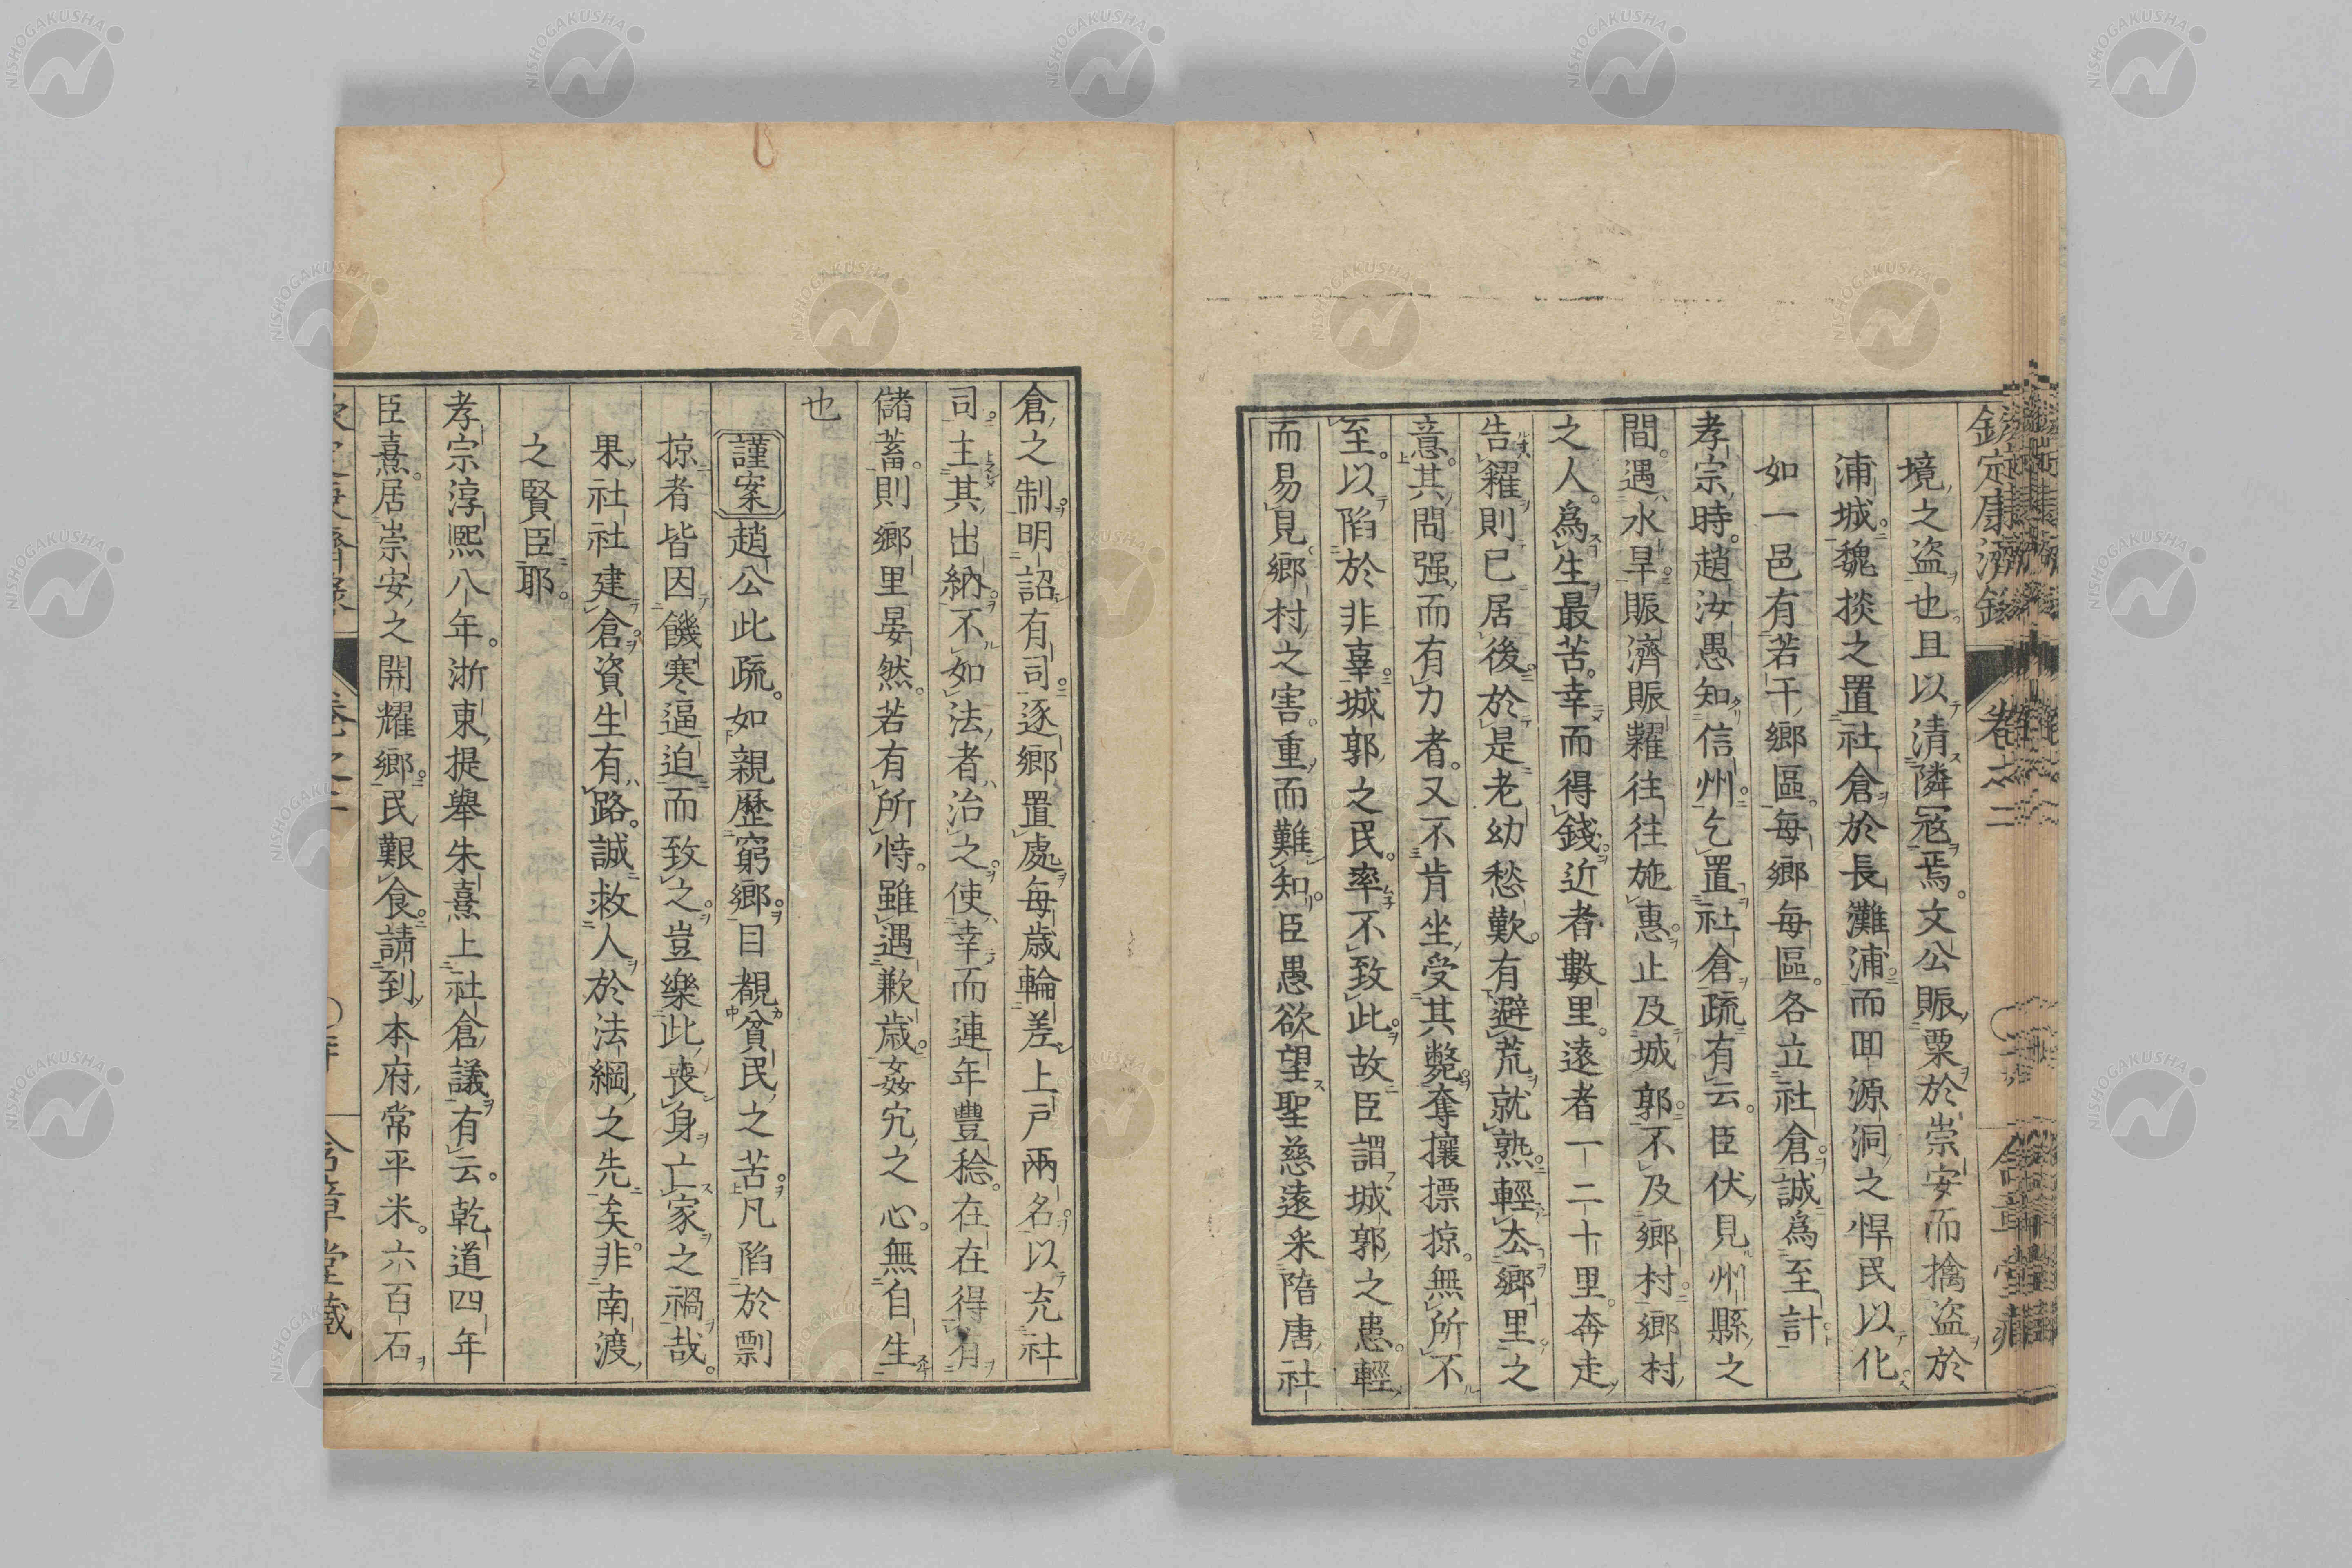 欽定康濟錄 卷之二
境之盜也且以清隣冦焉。文公賑粟於崇安而擒盜於
浦城。魏掞之置社倉於長灘浦而回源洞之悍民以化
如一邑有若干鄉區。每鄉每區。各立社倉。誠爲至計
孝宗時。趙汝愚知信州。乞置社倉疏有云。臣伏見州縣之
間。遇水旱。賑濟賑糶往往施惠。止及城郭。不及鄉村。鄉村
之人。爲生最苦。幸而得錢。近者數里。遠者一二十里。奔走
告糴則已居後。於是老幼愁歎。有避荒就熟。輕去鄉里。之
意。其間强而有力者。又不肯坐受其斃。奪攘摽掠。無所不
至。以陷於非辜。城郭之民。率不致此。故臣謂城郭之患。輕
而易見。鄉村之害。重而難知。臣愚欲望聖慈遠采隋唐社
倉之制。明詔有司。逐鄉置處。每歲輪差上戶兩名。以充社
司。主其出納。不如法者治之。使幸而連年豐稔。在在得有
儲蓄。則鄉里晏然。若有所恃。雖遇歉歲。姦宄之心。無自生
也
謹案趙公此疏。如親歷窮鄉。目覩貧民之苦。凡陷於剽
掠者皆因饑寒逼迫而致之。豈樂此喪身亡家之禍哉。
果社社建倉。資生有路。誠救人於法網之先矣。非南渡
之賢臣耶。
孝宗淳熙八年。浙東提舉朱熹上社倉議有云。乾道四年
臣熹。居崇安之開耀鄉。民艱食。請到本府常平米。六百石